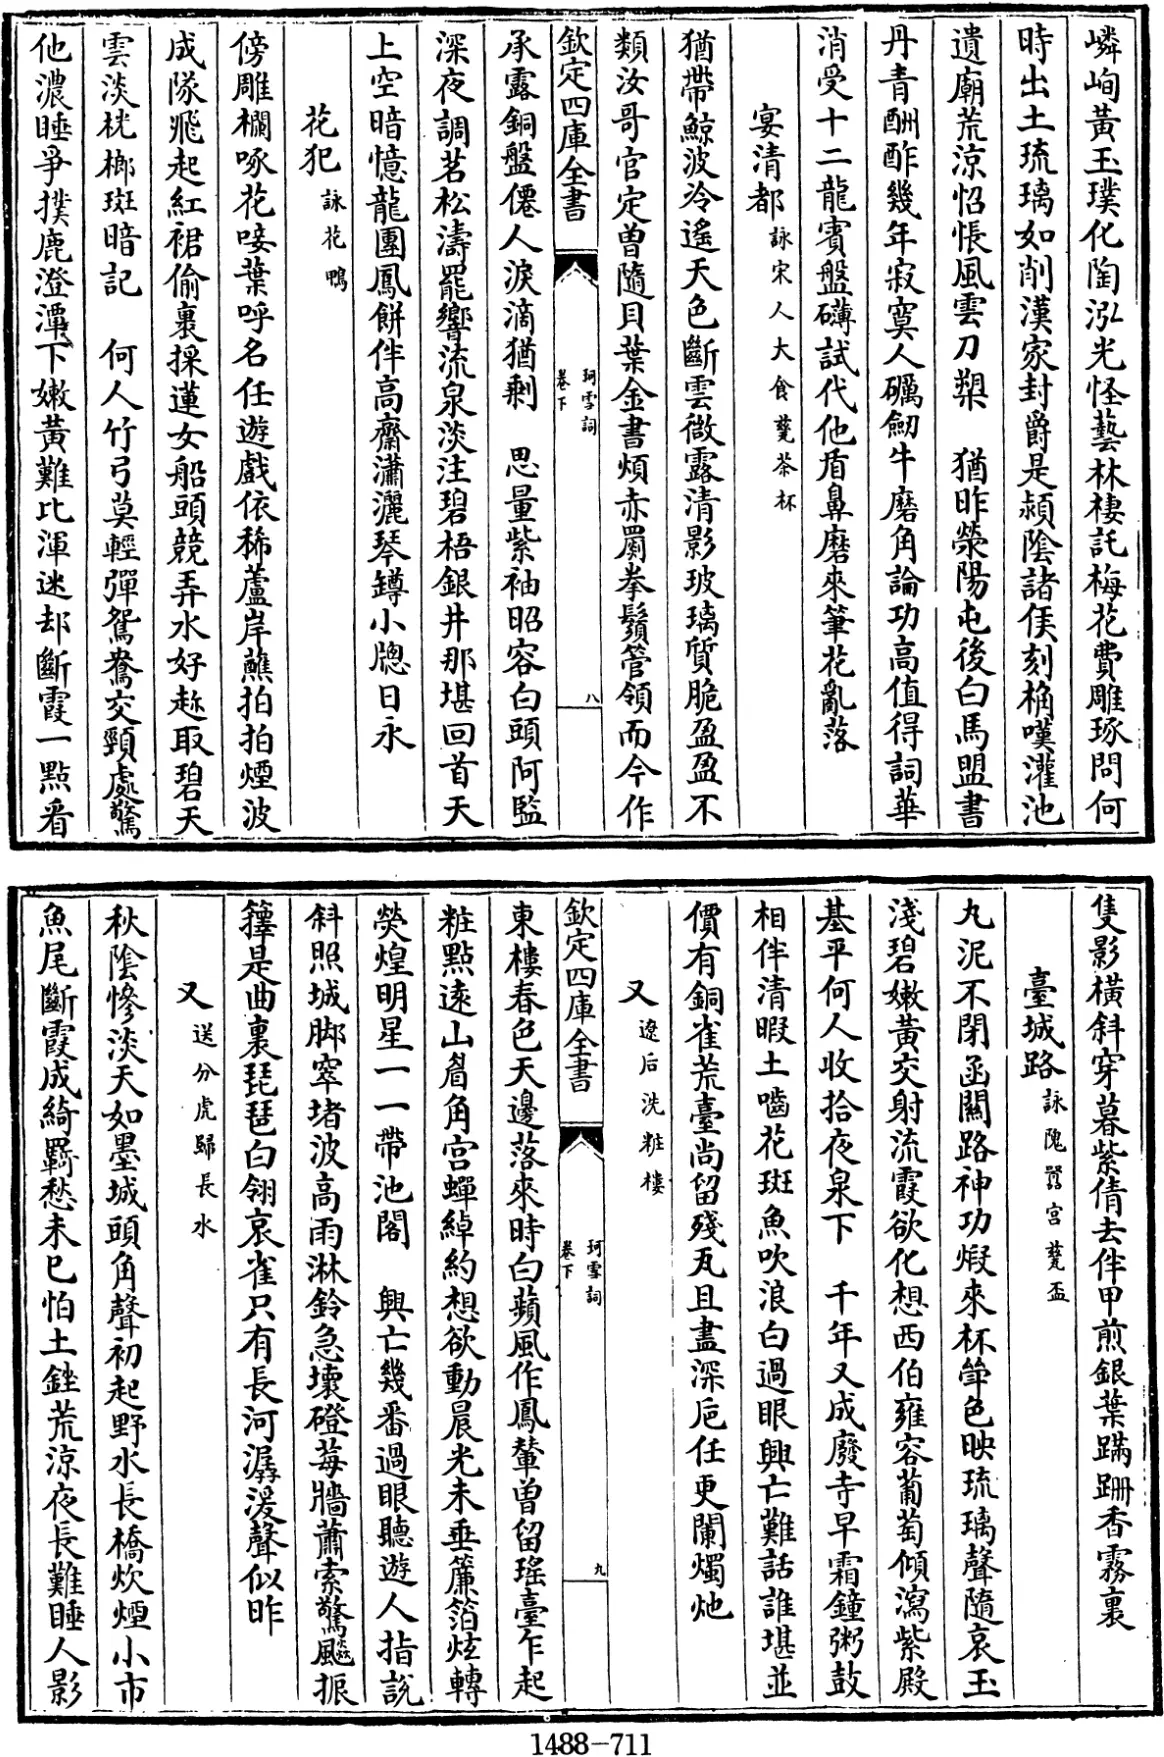 嶙峋黃玉璞化陶泓光怪藝林棲託梅花費雕琢問何
時出土琉璃如削漢家封爵是潁陰諸侯刻桷嘆灌池
遺廟荒涼怊悵風雲刀槊　猶昨滎陽屯後白馬盟書
丹青酬酢幾年寂寞人礪劒牛磨角論功高值得詞華
消受十二龍賓盤礴試代他盾鼻磨來筆花亂落
宴清都詠宋人大食甆茶杯
猶帶鯨波冷遙天色斷雲微露清影玻璃質脆盈盈不
類汝哥官定曾隨貝葉金書煩赤罽拳鬚管領而今作
欽定四庫全書
珂雪詞
卷下
八
承露銅盤僊人淚滴猶剩　思量紫袖昭容白頭阿監
深夜調茗松濤罷響流泉淡注碧梧銀井那堪回首天
上空暗憶龍團鳳餅伴高齋瀟灑琴罇小牕日永
花犯詠花鴨
傍雕欄啄花唼葉呼名任遊戲依稀蘆岸蘸拍拍煙波
成隊飛起紅裙偷裏採蓮女船頭競弄水好趂取碧天
雲淡桄榔斑暗記　何人竹弓莫輕彈鴛鴦交頸處驚
他濃睡爭撲鹿澄潭下嫩黃難比渾迷却斷霞一點看
隻影橫斜穿暮紫倩去伴甲煎銀葉蹣跚香霧裏
臺城路詠隗囂宮甆盃
丸泥不閉函關路神功煅來杯斝色映琉璃聲隨哀玉
淺碧嫩黃交射流霞欲化想西伯雍容葡萄傾瀉紫殿
基平何人收拾夜泉下　千年又成廢寺早霜鐘粥鼓
相伴清暇土嚙花斑魚吹浪白過眼興亡難話誰堪並
價有銅雀荒臺尚留殘瓦且盡深卮任更闌燭灺
又遼后洗粧樓
欽定四庫全書
珂雪詞
卷下
九
東樓春色天邊落來時白蘋風作鳳輦曾留瑤臺乍起
粧點遠山眉角宮蟬綽約想欲動晨光未垂簾箔炫轉
熒煌明星一一帶池閣　興亡幾番過眼聽遊人指說
斜照城脚窣堵波高雨淋鈴急壞磴莓牆蕭索驚飈振
籜是曲裏琵琶白翎哀雀只有長河潺湲聲似昨
又送分虎歸長水
秋陰慘淡天如墨城頭角聲初起野水長橋炊煙小市
魚尾斷霞成綺羈愁未已怕土銼荒涼夜長難睡人影
1488-711